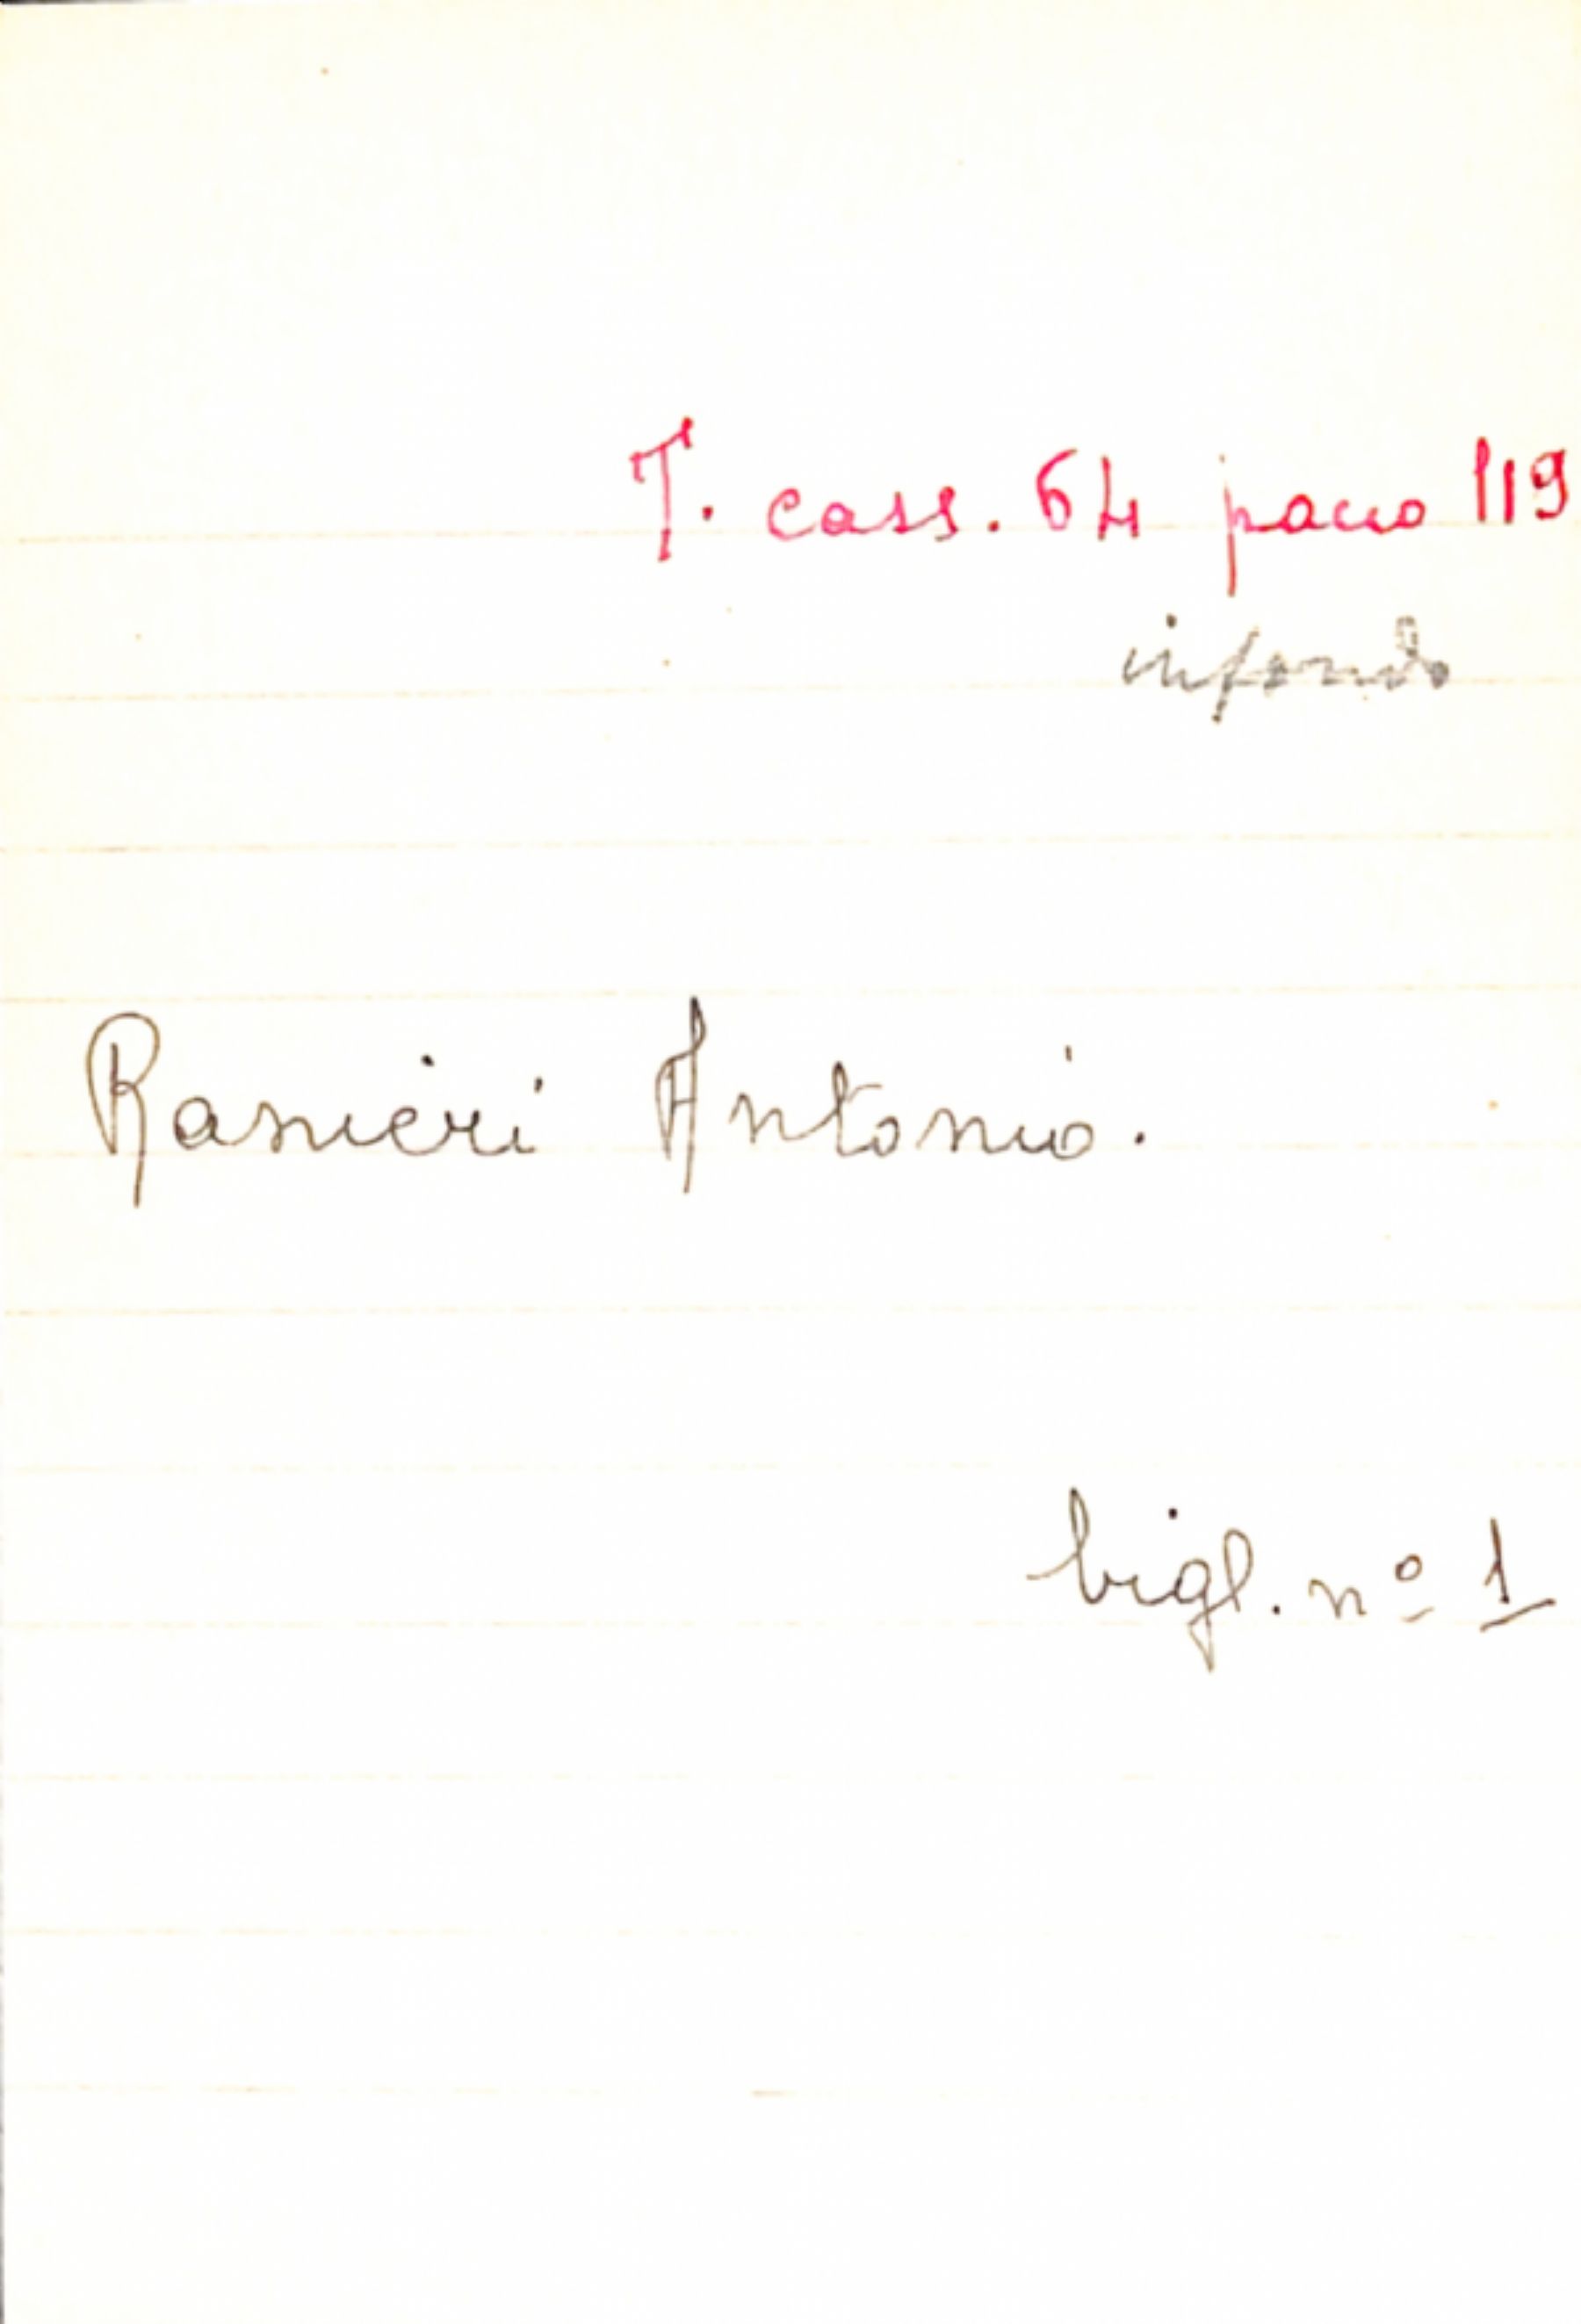 T. cass. 64 pacco 119
in fondo
Ranieri Antonio.
bigl. nº 1